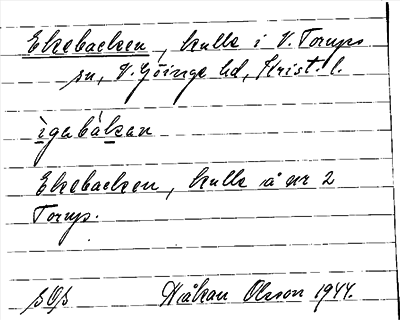 Ekebacken, kulle i V. Torups
sn, V. Göinge hd, Krist. l.
ìgabákan
Ekebacken, kulle å nr 2
Torup.
Håkan Olsson 1944.